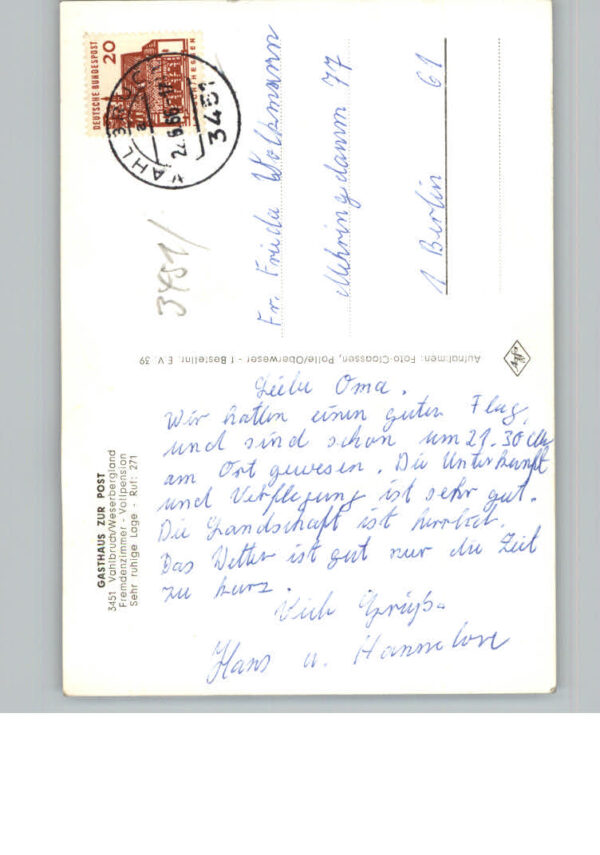 GASTHAUS ZUR POST
3451 Vahlbruch/Weserbergland
Fremdenzimmer - Vollpension
Sehr ruhige Lage - Ruf: 271
Liebe Oma.
Wir hatten einen guten Flug,
und sind schon um 21.30 Uhr
am Ort gewesen. Die Unterkunft
und Verpflegung ist sehr gut.
Die Landschaft ist herrlich.
Das Wetter ist gut nur die Zeit
zu kurz.
Viele Grüße
Hans u. Hannelore
Aufnahmen: Foto-Claassen, Polle/Oberweser - f Bestellnr: E.V. 39
Agfa
DEUTSCHE BUNDESPOST
20
3451
3451/
Fr. Frieda Woltmann
Mehringdamm 77
1 Berlin 61